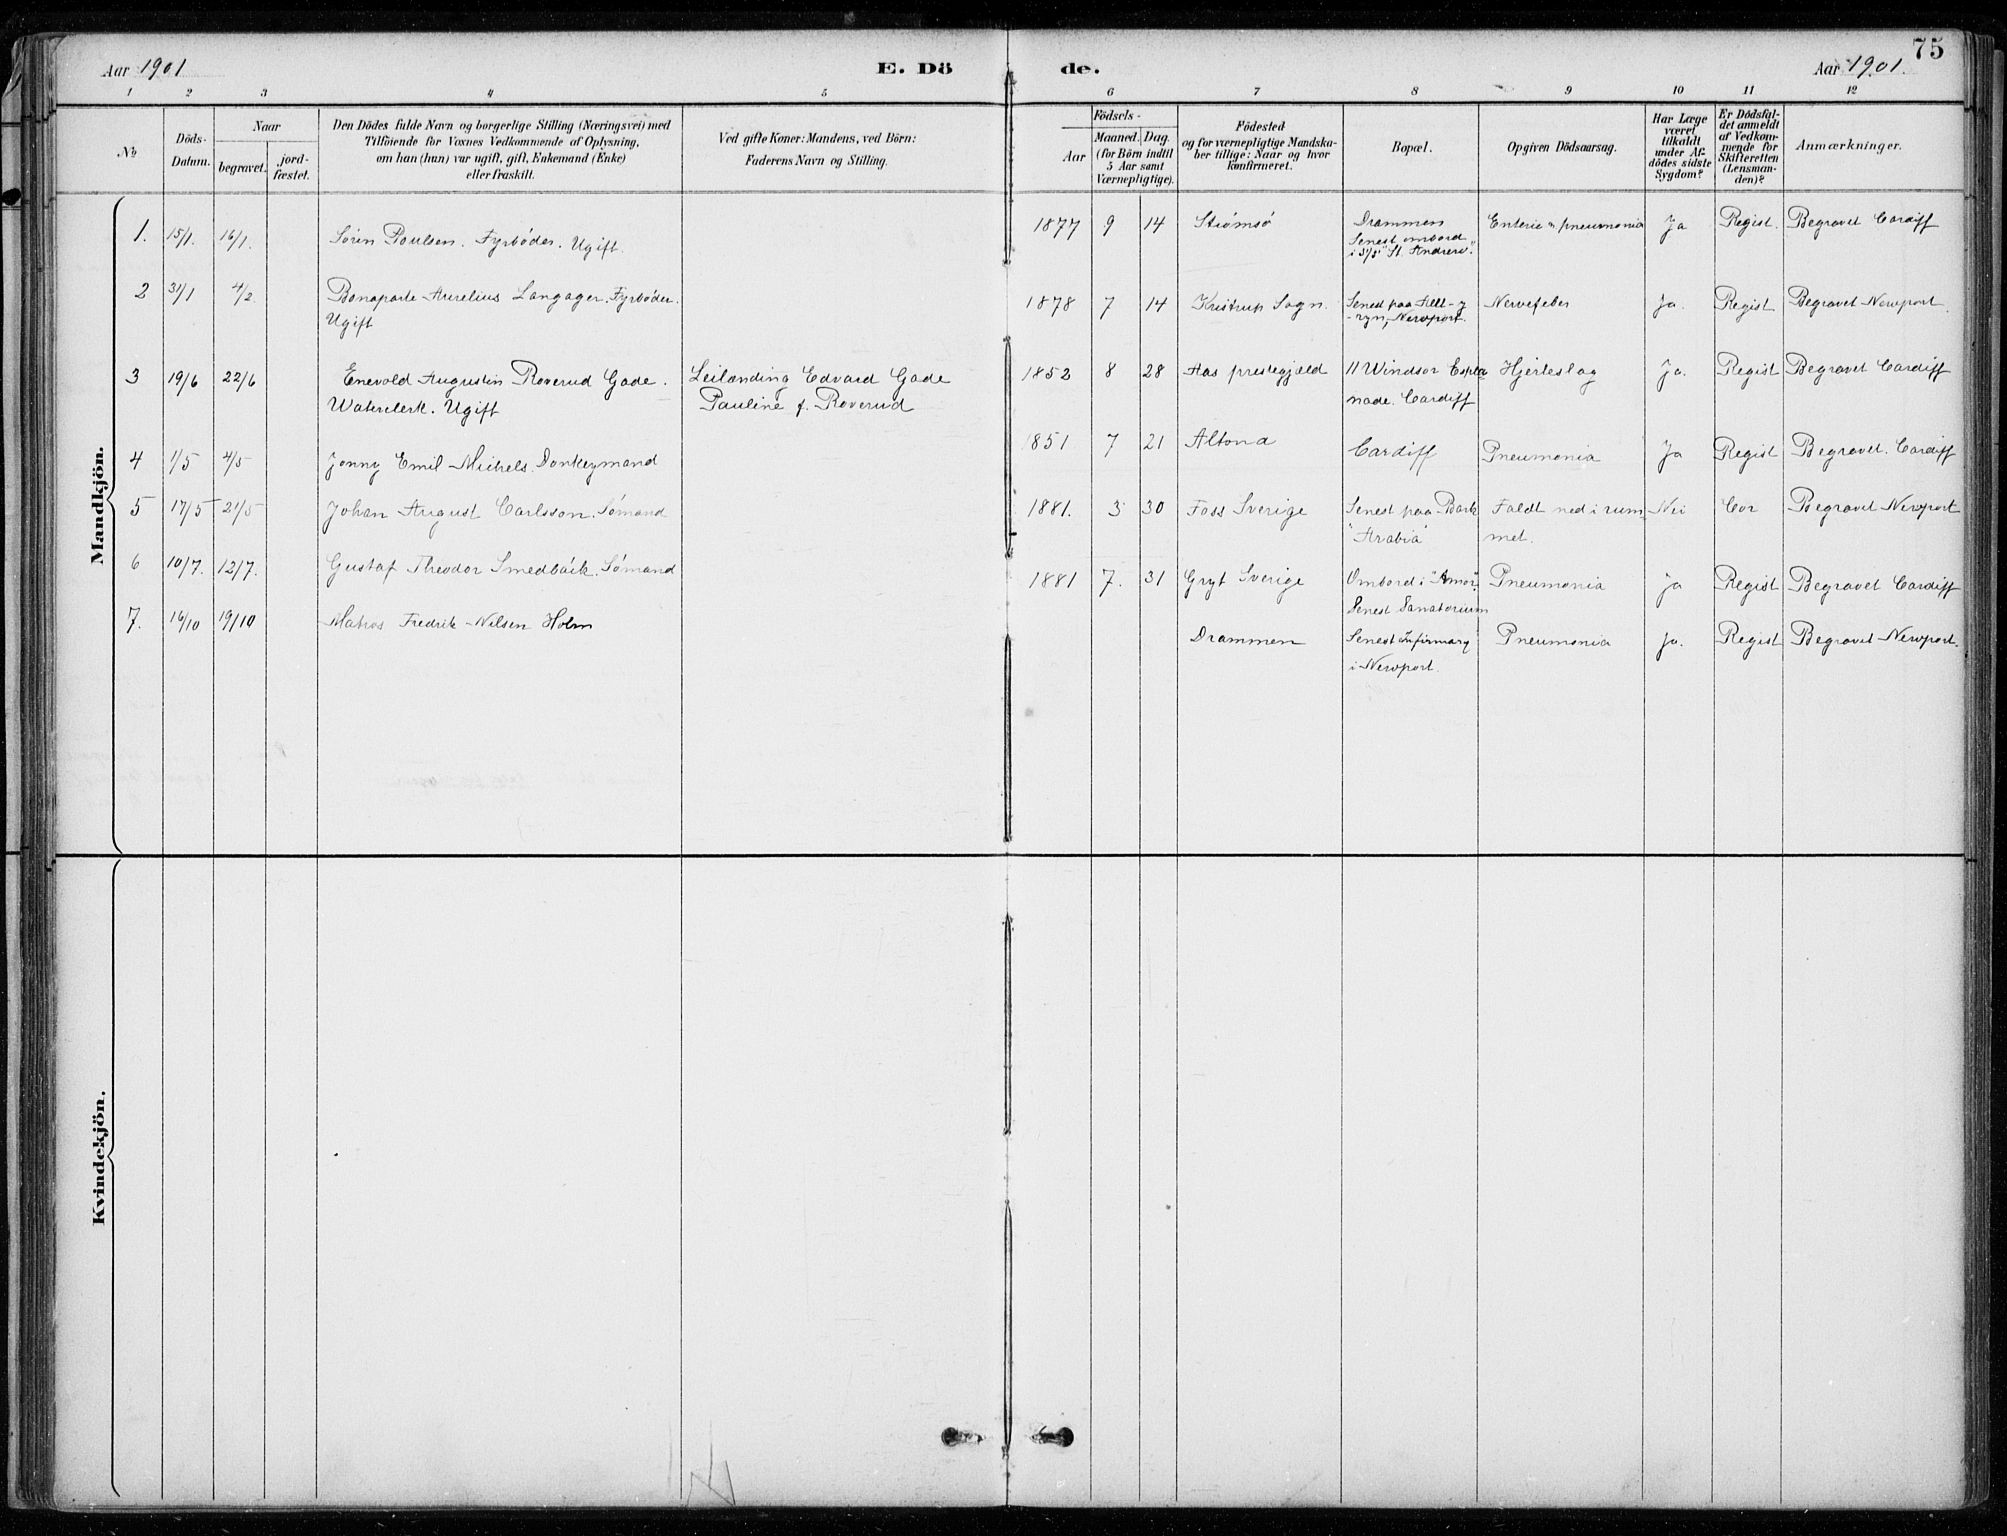 75
Aar 1901 E. Dö de. Aar 1901.
1 2 3 4 5 6 7 8 9 10 11 12
№
Döds-Datum.
Naar
begravet.
jord-fæstet.
Den Dödes fulde Navn og borgerlige Stilling (Næringsvei) med
Tilföiende for Voxnes Vedkommende af Oplysning,
om han (hun) var ugift, gift, Enkemand (Enke)
eller fraskilt.
Ved gifte Koner: Mandens, ved Börn:
Faderens Navn og Stilling.
Födsels-
Aar
Maaned. Dag.
(for Börn indtil
5 Aar samt
Værnepligtige).
Födested
og for værnepligtige Mandska-
ber tillige: Naar og hvor
konfirmeret.
Bopæl.
Opgiven Dödsaarsag.
Har Læge
været
tilkaldt
under Af-
dödes sidste
Sygdom?
Er Dödsfal-
det anmeldt
af Vedkom-
mende for
Skifteretten
(Lensman-
den)?
Anmærkninger.
Mandkjön.
1. 15/1. 16/1. Sören Poulsen. Fyrböder. Ugift. 1877 9 14 Strömsö Drammen Enteria & pneumonia Ja Regist. Begravet Cardiff
Senest ombord
i S/S "St. Andrew".
2 31/1 4/2. Bonaparte Aurelius Langager. Fyrböder. 1878 7 14 Kristrup Sogn. Senest paa Allt-y Nervefeber Ja. Regist Begravet Newport.
Ugift -ryn, Newport.
3 19/6 22/6 Enevold Augustin Roverud Gade. Leilænding Edvard Gade 1852 8 28 Aas prestegjæld 11 Windsor Espla Hjerteslag Ja. Regist Begravet Cardiff
Waterclerk. Ugift Pauline f. Roverud nade. Cardiff
4 1/5 4/5 Jonny Emil Michels. Donkeymand 1851 7 21 Altona Cardiff Pneumonia Ja Regist Begravet. Cardiff
5 17/5 21/5 Johan August Carlsson. Sömand 1881. 3 30 Foss Sverige Senest paa Bark Faldt ned i rum- Nei Cor Begravet Newport
"Arabia" met.
6 10/7. 12/7. Gustaf Theodor Smedbäck. Sömand 1881 7. 31 Gryt Sverige Ombord i "Amor". Pneumonia Ja Regist Begravet Cardiff
Senest Sanatorium
7. 16/10 19/10 Matros Fredrik Nilsen Holm Drammen Senest Infirmary Pneumonia Ja. Regist Begravet Newport.
i Newport.
Kvindekjön.